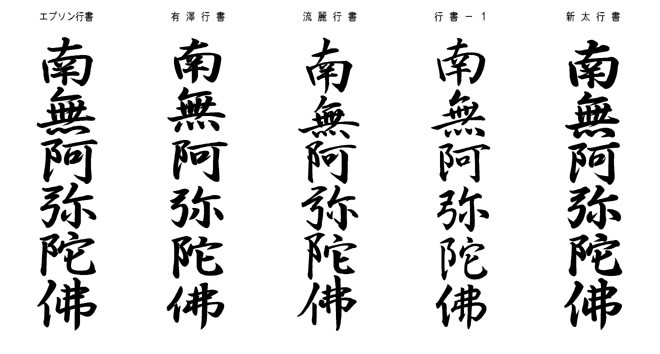 エプソン行書
南無阿弥陀佛
有澤行書
南無阿弥陀佛
流麗行書
南無阿弥陀佛
行書－1
南無阿弥陀佛
新太行書
南無阿弥陀佛